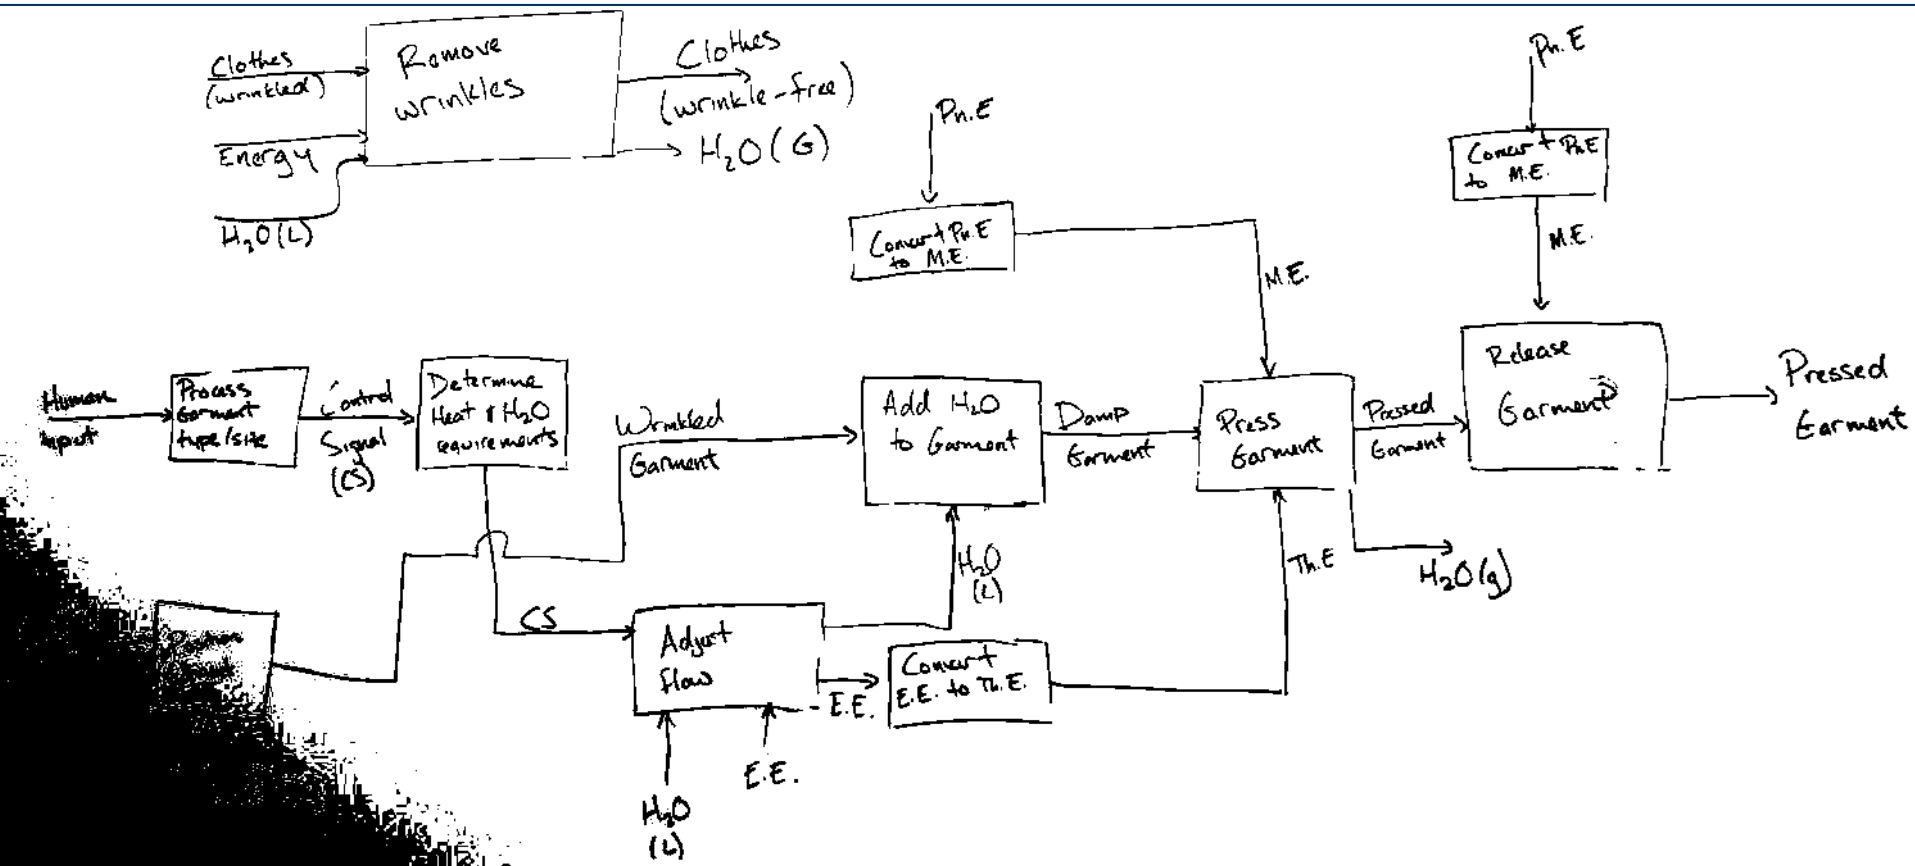 Clothes
(wrinkled)
Energy
H₂O(L)
Remove
wrinkles
Clothes
(wrinkle-free)
H₂O(G)
Pn.E
Convert Pn.E
to M.E.
M.E.
Pn.E
Convert Pn.E
to M.E.
M.E.
Human
input
Process
Garment
type/size
Control
Signal
(CS)
Determine
Heat & H₂O
requirements
Wrinkled
Garment
Add H₂O
to Garment
Damp
Garment
Press
Garment
Pressed
Garment
Release
Garment
Pressed
Garment
CS
Adjust
flow
H₂O
(L)
E.E.
H₂O
(L)
E.E.
Convert
E.E. to Th.E.
Th.E
H₂O(g)